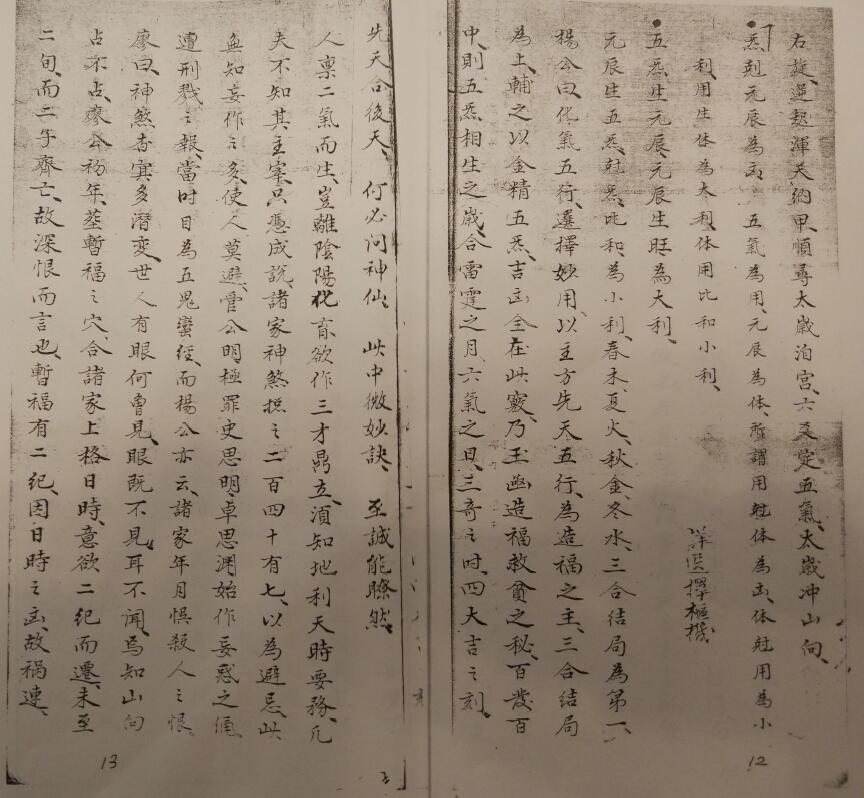 右旋逆起渾天納甲順尋太歲泊宮六爻定五氣太歲冲山向、
炁剋元辰為凶、五氣為用、元辰為体、所謂用尅体為凶、体尅用為小
利、用生体為大利、体用比和小利、
五炁生元辰、元辰生旺為大利、
元辰生五炁、尅炁、比和為小利、春木、夏火、秋金、冬水、三合結局為第一、
楊公曰、化氣五行、選擇妙用、以主方先天五行、為造福之主、三合結局
為土輔之以金精五炁、吉凶全在此竅、乃玉凾造福救貧之秘、百發百
中、則五炁相生之歲、合雷霆之月、六氣之日、三奇之时、四大吉之刻、
選擇樞機
12
先天合後天、何必问神仙、此中微妙訣、至誠能瞭然、
人稟二氣而生、豈離陰陽化育欲作三才鼎立、須知地利天時要務、凡
夫不知其主宰、只憑成説、諸家神煞摭之二百四十有七、以為避忌、此
無知妄作之多、使人莫避、管公明極罪史思明、卓思渊、始作妄惑之俑、
遭刑戮之報、當时目為五鬼蠻經、而楊公亦云、諸家年月悞殺人之恨、
廖曰、神煞杳冥多潛変、世人有眼何曾見、眼既不見、耳不闻、焉知山向
占不占、廖公初年、塟暫福之穴、合諸家上格日時、意欲二紀而遷、未至
二旬、而二子齊亡、故深恨而言也、暫福有二紀、因日時之凶、故禍連、
13